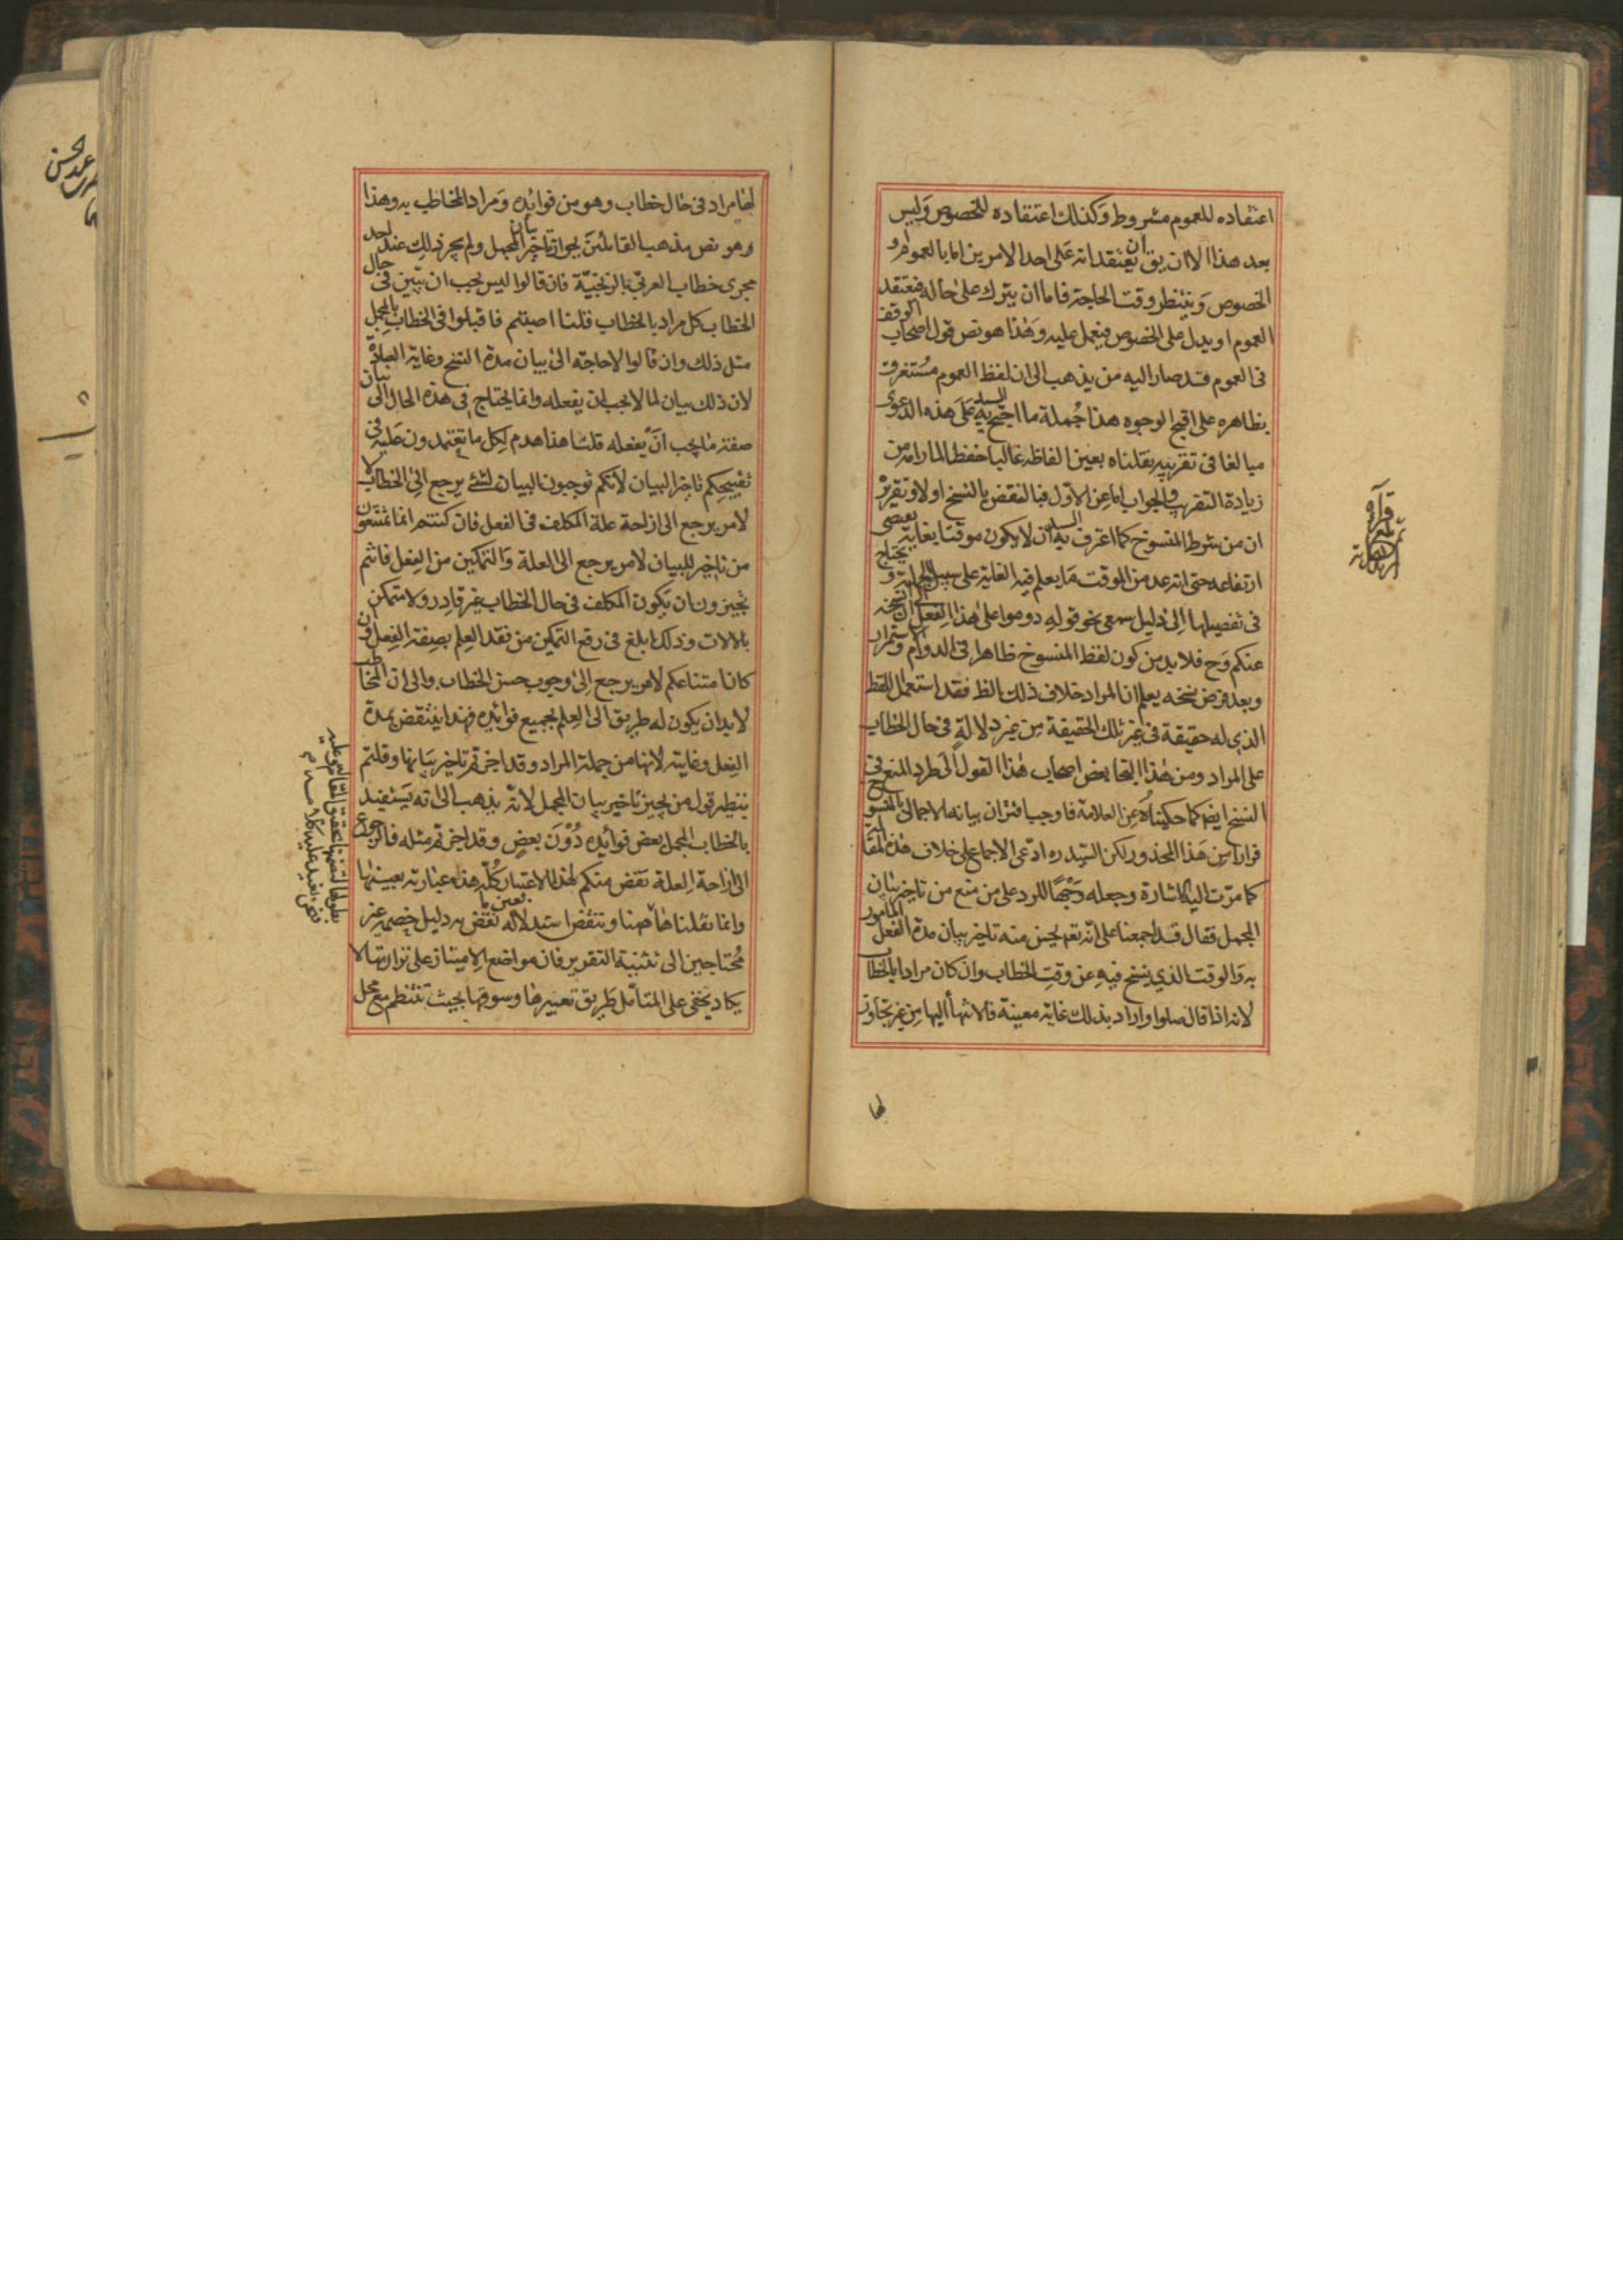 اعتقاده للعموم مشروط وكذلك اعتقاده للخصوص وليس
بعد هذا الا ان يق ان يعتقد انه على احد الامرين اما بالعموم او
الخصوص وينتظر وقت الحاجة فاما ان يترك على حاله فيعتقد
العموم او يدل على الخصوص فيعمل عليه وهذا هو نص قول اصحاب الوقف
فى العموم قد صار اليه من يذهب الى ان لفظ العموم مستغرق
بظاهره على اقبح الوجوه هذا جملة ما احتج به السيد على هذه الدعوى
مبالغا فى تقريبه نقلناه بعين الفاظه غالبا حفظا لما رامه من
زيادة التقريب والجواب اما عن الاول فبالنقض بالنسخ اولا وتقريره
ان من شرط المنسوخ كما اعترف به السيد ان لا يكون موقتا بغاية يقتضى
ارتفاعه حتى انه عد من الموقت ما يعلم فيه الغاية على سبيل الجملة و يحتاج
فى تفصيلها الى دليل سمعى نحو قوله دوموا على هذا الفعل الى ان انسخه
عنكم وح فلا بد من كون لفظ المنسوخ ظاهرا فى الدوام والاستمرار
وبعد فرض نسخه يعلم ان المراد خلاف ذلك الظ فقد استعمل اللفظ
الذى له حقيقة فى غير تلك الحقيقة من غير دلالة فى حال الخطاب
على المراد ومن هذا التجا بعض اصحاب هذا القول الى طرد المنع فى
النسخ ايضا كما حكيناه عن العلامة فاوجب اقتران بيانه الاجمالى بالمنسوخ
فرارا من هذا المحذور لكن السيد ره ادعى الاجماع على خلاف هذه المقالة
كما مرت اليه الاشارة وجعله وجها للرد على من منع من تاخير بيان
المجمل فقال قد اجمعنا على انه تعم يحسن منه تاخير بيان مدة الفعل المامور
به والوقت الذى ينسخ فيه عن وقت الخطاب وان كان مرادا بالخطاب
لانه اذا قال صلوا واراد بذلك غاية معينة فالانتهاء اليها من غير تجاوز
لها
لها مراد فى حال خطاب وهو من فوائده ومراد المخاطب به وهذا
وهو نص مذهب القائلين بجواز تاخير بيان المجمل ولم يجر ذلك عند احد
مجرى خطاب العربى بالزنجية فان قالوا ليس يجب ان يبين فى حال
الخطاب كل مراد بالخطاب قلنا اصبتم فاقبلوا فى الخطاب بالمجمل
مثل ذلك وان قالوا لا حاجة الى بيان مدة النسخ وغاية العبادة
لان ذلك بيان لما لا يجب ان يفعله وانما يحتاج فى هذه الحال الى بيان
صفة ما يجب ان يفعله قلنا هذا هدم لكل ما تعتمدون عليه فى
تقبيحكم تاخير البيان لانكم توجبون البيان لشئ يرجع الى الخطاب لا
لامر يرجع الى ازاحة علة المكلف فى الفعل فان كنتم انما تمتنعون
من تاخير للبيان لامر يرجع الى العلة والتمكين من الفعل فانتم
تجيزون ان يكون المكلف فى حال الخطاب غير قادر ولا متمكن
بالالات وذلك ابلغ فى رفع التمكين من فقد العلم بصفة الفعل وان
كان امتناعكم لامر يرجع الى وجوب حسن الخطاب والى ان المخاطب
لا بد ان يكون له طريق الى العلم بجميع فوائده فهذا ينتقض بمدة
الفعل وغايته لانها من جملة المراد وقد اجزتم تاخير بيانها وقلتم
بنظير قول من يجيز تاخير بيان المجمل لانه يذهب الى انه يستفيد
بالخطاب المجمل بعض فوائده دون بعض وقد اجزتم مثله فالرجوع
الى ازاحة العلة نقض منكم لهذا الاعتبار كله هذه عبارته بعينها
وانما نقلناها ههنا وننقض استدلاله بعين ما نقض به دليل خصمه غير
محتاجين الى تثنية التقرير فان مواضع الامتياز على نزارتها لا
يكاد يخفى على المتامل طريق تعبيرها وسوقها بحيث تنتظم مع محل